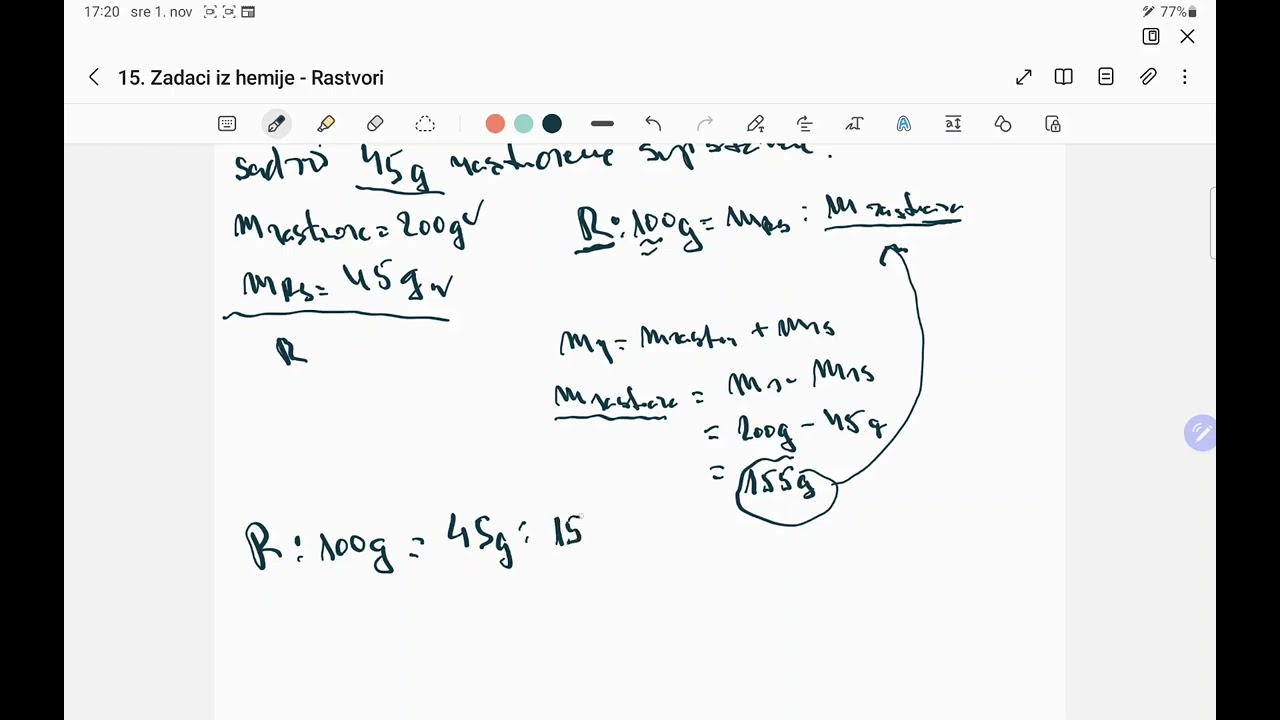 17:20 sre 1. nov 77%
15. Zadaci iz hemije - Rastvori
sadrži 45g rastvorene supstance.
m rastvora = 200g✓
mrs = 45g✓
R
R : 100g = mrs : m rastvarača
mr = mrastv + mrs
m rastvarača = mr - mrs
= 200g - 45g
= 155g
R : 100g = 45g : 15